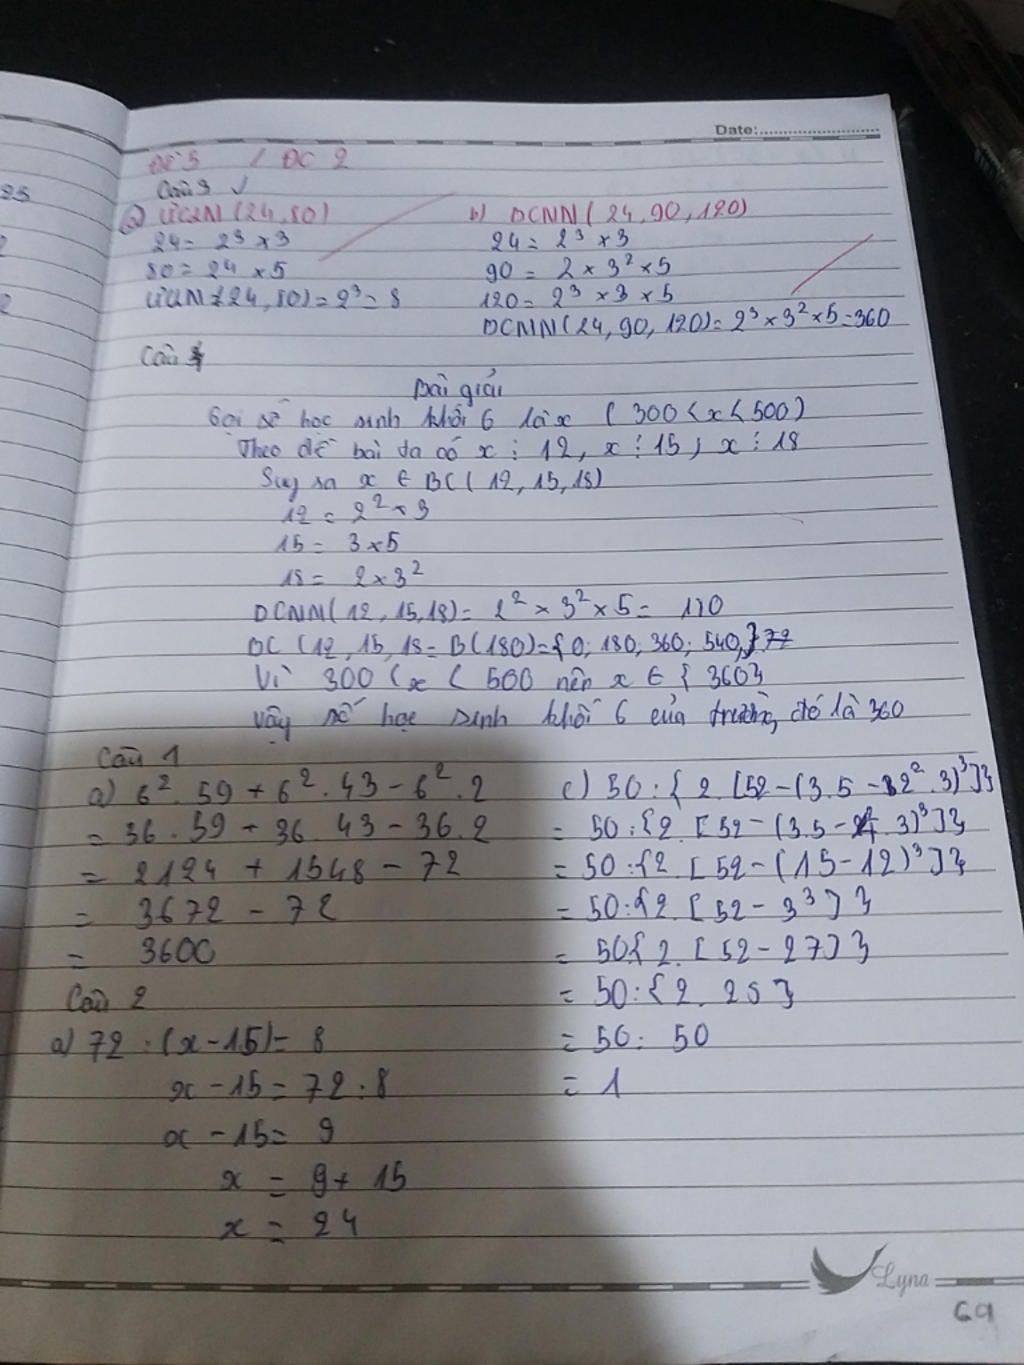 Date:
ĐỀ 5 / ĐC 2
Câu 3 ✓
a) ƯCLN (24,80)
24 = 2³ × 3
80 = 2⁴ × 5
ƯCLN (24, 80) = 2³ = 8
b) BCNN ( 24, 90, 120)
24 = 2³ × 3
90 = 2 × 3² × 5
120 = 2³ × 3 × 5
BCNN (24, 90, 120) = 2³ × 3² × 5 = 360
Câu 4
Bài giải
Gọi số học sinh khối 6 là x ( 300 < x < 500)
Theo đề bài ta có x ⋮ 12, x ⋮ 15, x ⋮ 18
Suy ra x ∈ BC ( 12, 15, 18)
12 = 2² × 3
15 = 3 × 5
18 = 2 × 3²
BCNN (12, 15, 18) = 2² × 3² × 5 = 180
BC (12, 15, 18 = B(180) = { 0; 180; 360; 540;}
Vì 300 < x < 500 nên x ∈ { 360}
Vậy số học sinh khối 6 của trường đó là 360
Câu 1
a) 6² . 59 + 6² . 43 - 6² . 2
= 36 . 59 + 36 . 43 - 36 . 2
= 2124 + 1548 - 72
= 3672 - 72
= 3600
c) 50 : { 2. [52 - (3.5 - 2² . 3)³]}
= 50 : {2. [52 - (3.5 - 4 . 3)³]}
= 50 : {2. [52 - (15 - 12)³]}
= 50 : {2. [52 - 3³]}
= 50{ 2. [52 - 27]}
= 50 : {2. 25}
= 50 : 50
= 1
Câu 2
a) 72 : (x - 15) = 8
x - 15 = 72 : 8
x - 15 = 9
x = 9 + 15
x = 24
Lyna